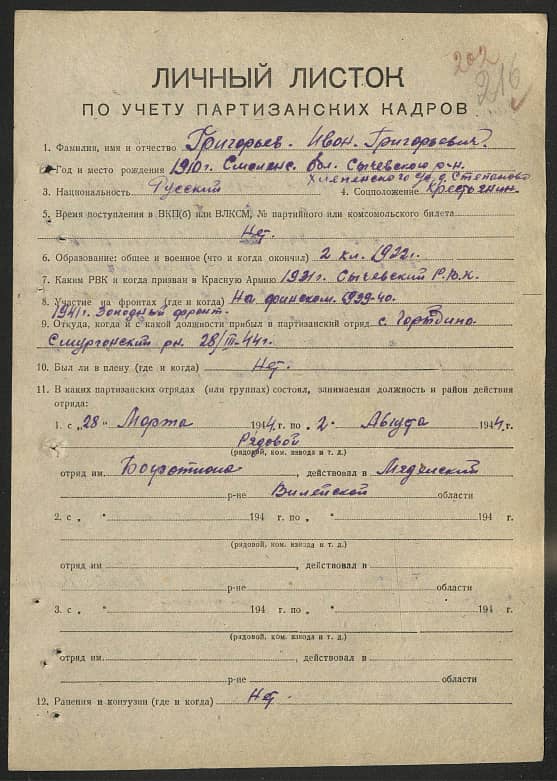 202
216
ЛИЧНЫЙ ЛИСТОК
ПО УЧЕТУ ПАРТИЗАНСКИХ КАДРОВ
1. Фамилия, имя и отчество Григорьев Иван Григорьевич
2. Год и место рождения 1910 г. Смоленс. обл. Сычевского р-н.
Хлепенского с/с д. Степаново
3. Национальность Русский 4. Соцположение Крестьянин.
5. Время поступления в ВКП(б) или ВЛКСМ, № партийного или комсомольского билета
Нет.
6. Образование: общее и военное (что и когда окончил) 2 кл. 1922 г.
7. Каким РВК и когда призван в Красную Армию 1931 г. Сычевский Р.В.К.
8. Участие на фронтах (где и когда) На финском. 1939-40.
1941 г. Западный фронт.
9. Откуда, когда и с какой должности прибыл в партизанский отряд с.
Сморгонский рн. 28/III-44 г.
10. Был ли в плену (где и когда) Нет.
11. В каких партизанских отрядах (или группах) состоял, занимаемая должность и район действия
отряда:
1. с „28" Марта 1944 г. по „2" Августа 1944 г.
Рядовой
(рядовой, ком. взвода и т. д.)
отряд им. , действовал в Мядельский
р-не Вилейской области
2. с „ " 194 г. по „ " 194 г.
(рядовой, ком. взвода и т. д.)
отряд им , действовал в
р-не области
3. с „ " 194 г. по „ " 194 г.
(рядовой, ком. взвода и т. д.)
отряд им. , действовал в
р-не области
12. Ранения и контузии (где и когда) Нет.